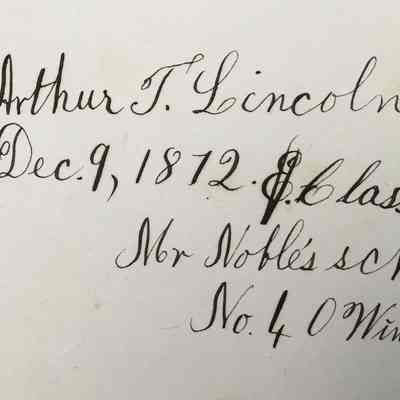 Arthur T. Lincoln
Dec. 9, 1872. Class
Mr Noble's sch
No. 40 Win